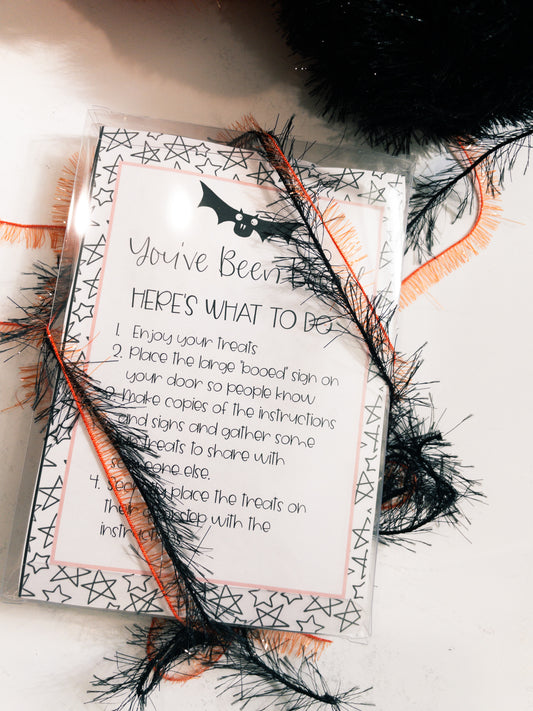 You've Been
HERE'S WHAT TO DO
1. Enjoy your treats
2. Place the large "booed" sign on
your door so people know
Make copies of the instructions
and signs and gather some
treats to share with
someone else.
4. Secretly place the treats on
their doorstep with the